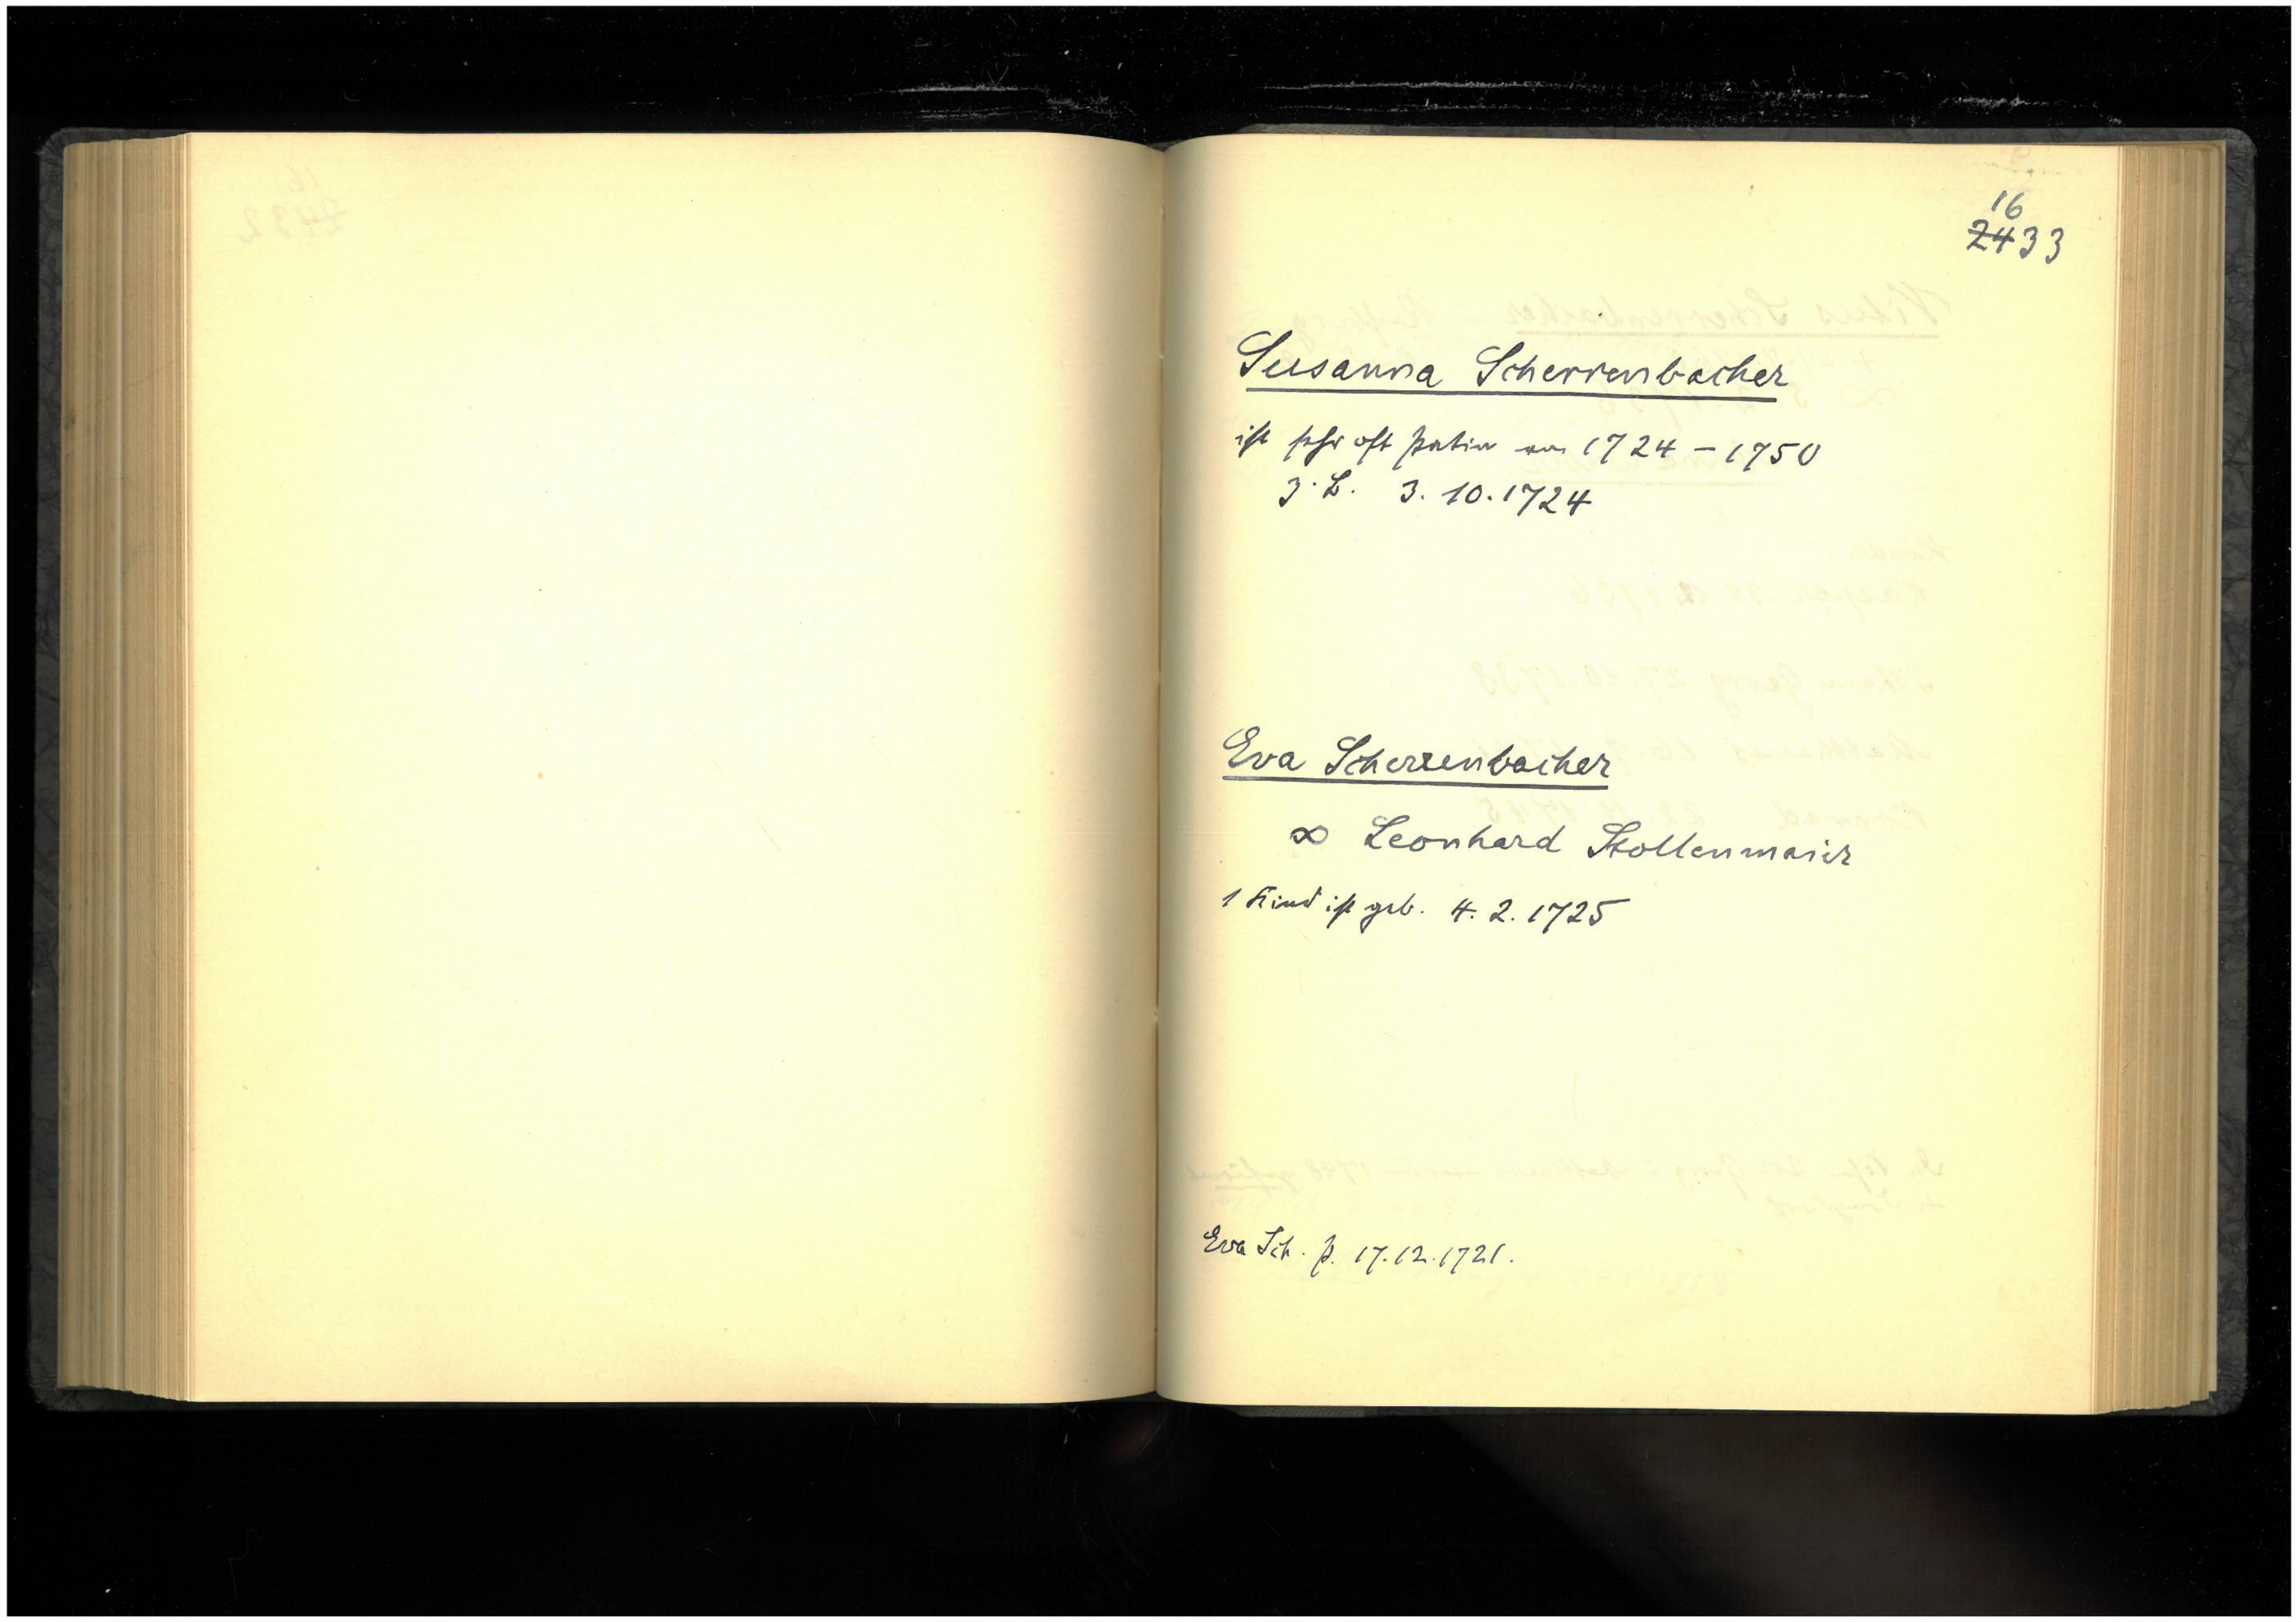 16
2433
Susanna Scherrenbacher
ist sehr oft Patin von 1724 – 1750
z. B. 3. 10. 1724
Eva Scherrenbacher
∞ Leonhard Stollenmaier
1 Kind ist geb. 4. 2. 1725
Eva Sch. p. 17.12.1721.